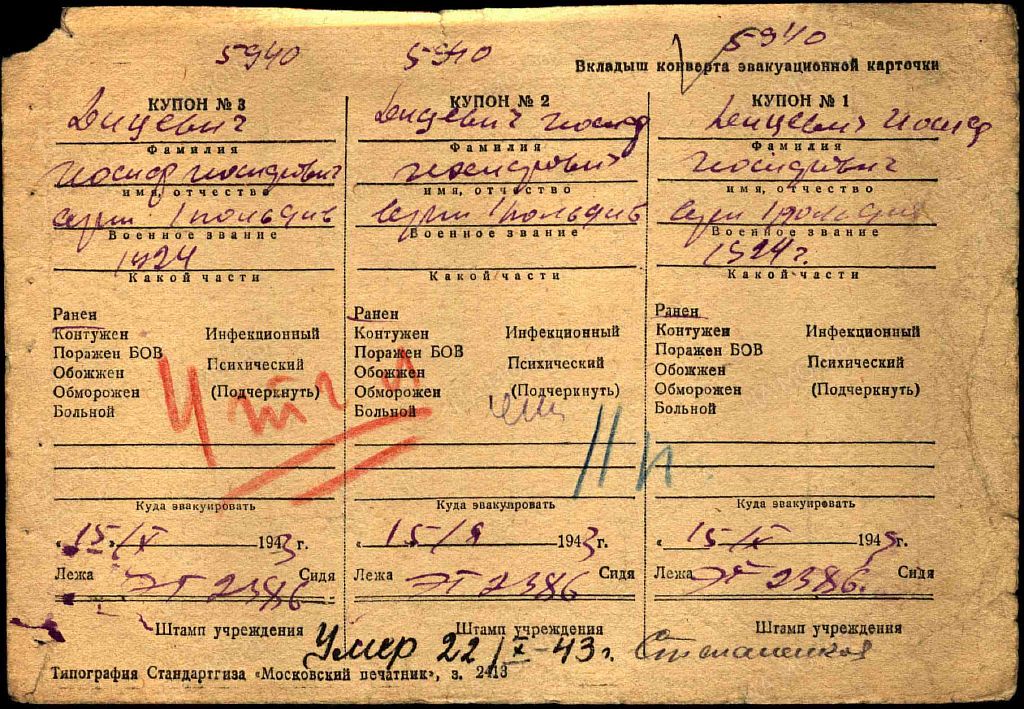 5940 5940 5940
Вкладыш конверта эвакуационной карточки
КУПОН № 3
Дицевич
Фамилия
Иосиф Иосифович
имя, отчество
Военное звание
1924
Какой части
Ранен
Контужен Инфекционный
Поражен БОВ
Обожжен Психический
Обморожен (Подчеркнуть)
Больной
Куда эвакуировать
«15» IX 1943 г.
Лежа ЭГ 2386 Сидя
Штамп учреждения
КУПОН № 2
Дицевич Иосиф
Фамилия
Иосифович
имя, отчество
Военное звание
Какой части
Ранен
Контужен Инфекционный
Поражен БОВ
Обожжен Психический
Обморожен (Подчеркнуть)
Больной
Куда эвакуировать
«15/IX 1943 г.
Лежа ЭГ 2386 Сидя
Штамп учреждения
КУПОН № 1
Дицевич Иосиф
Фамилия
Иосифович
имя, отчество
Военное звание
1924 г.
Какой части
Ранен
Контужен Инфекционный
Поражен БОВ
Обожжен Психический
Обморожен (Подчеркнуть)
Больной
Куда эвакуировать
«15/IX 1943 г.
Лежа ЭГ 2386. Сидя
Штамп учреждения
Умер 22/IX-43 г.
Типография Стандартгиза «Московский печатник», з. 2413